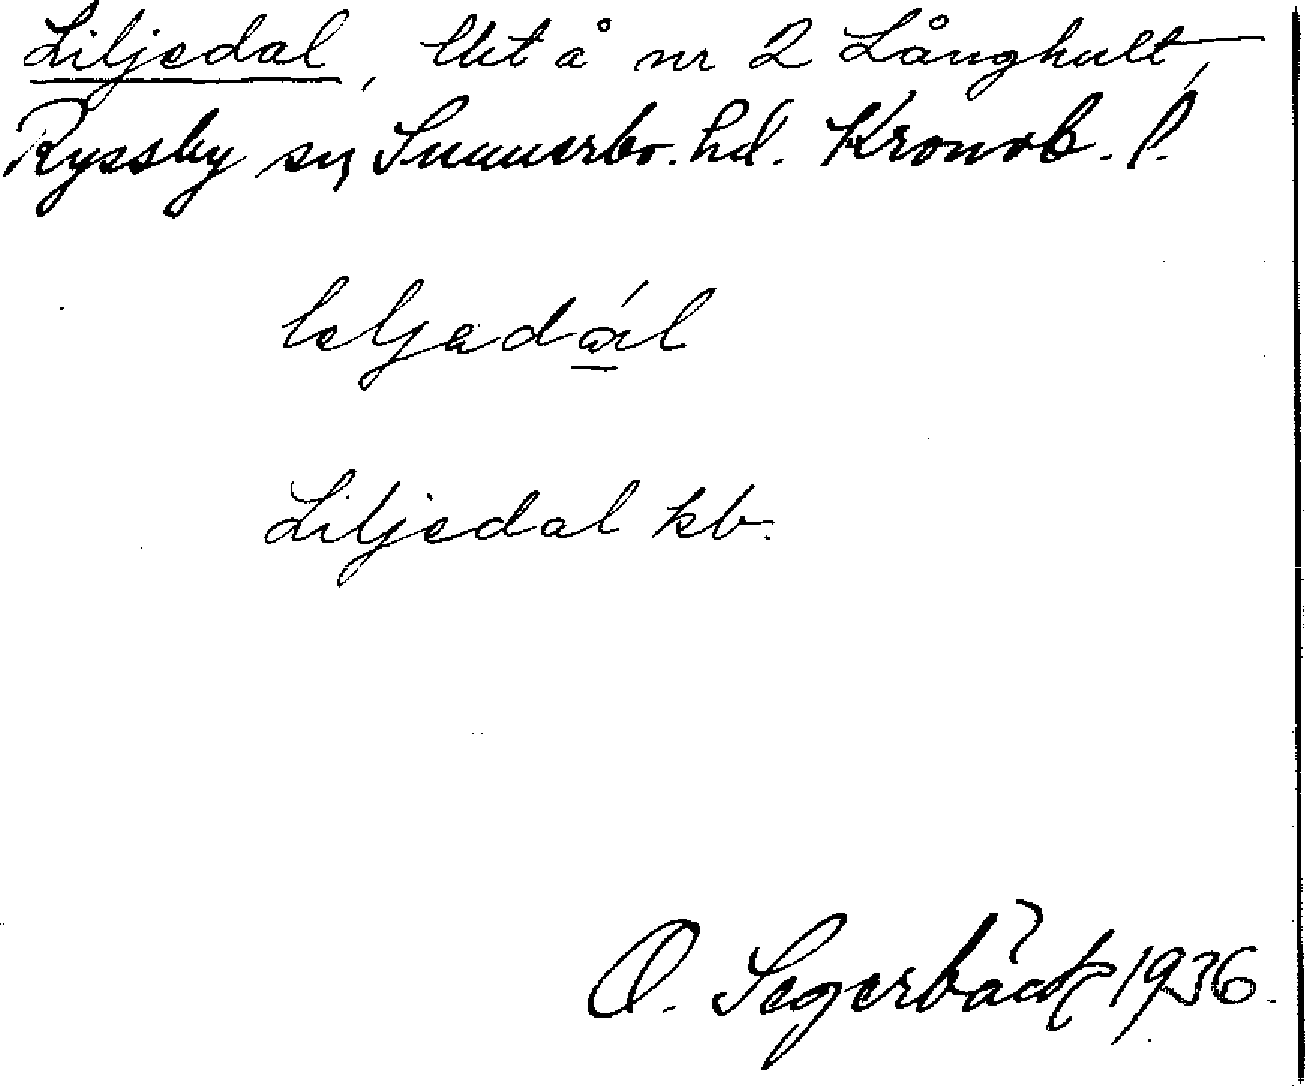 Liljedal, lht å nr 2 Långhult,
Ryssby sn, Sunnerbo. hd. Kronob. l.
leljadál
Liljedal kb.
O. Segerbäck 1936.